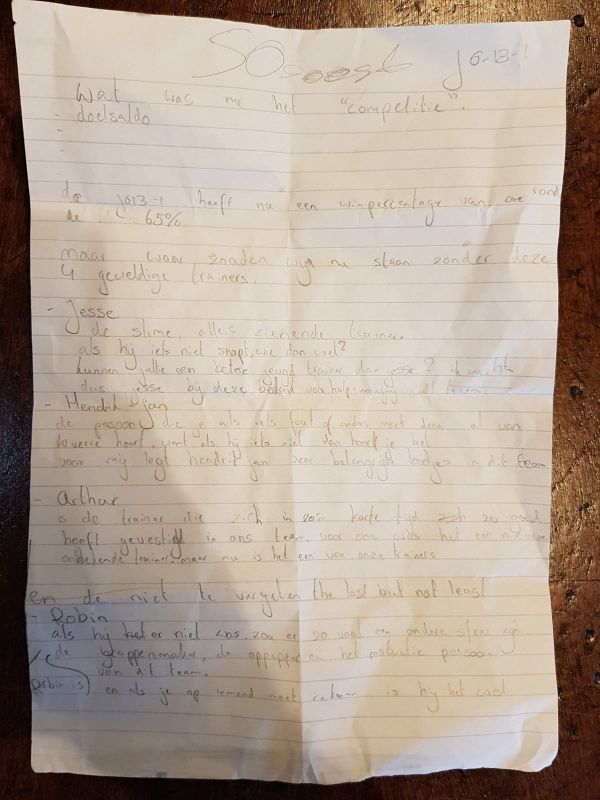 SO Soest JO-13-1
Wat was nu het "competitie".
- doelsaldo
-
-
de JO13-1 heeft nu een winpercentage van rond
de 65%
maar waar zouden wij nu staan zonder deze
4 geweldige trainers.
- Jesse
de slime, alles zienende trainer.
als hij iets niet snapt, wie dan wel?
kunnen jullie een betere jeugd trainer dan jesse? ik wacht
dus jesse bij deze, bedankt voor team
- Hendrik jan
de persoon die je als iets fout of anders moet doen al van
hoort, want als hij iets ziet dan hoor je het
voor mij legt hendrik jan zeer belangrijk in dit team
- Arthur
is de trainer die zich in zo'n korte tijd zich zo goed
heeft gevestigd in ons team. voor ons was het een nieuwe
onbekende trainer, maar nu is het een van onze trainers
en de niet te vergeten the last but not least
- Robin
als hij er niet was, zou er zo veel een andere sfeer zijn.
de grappenmaker, de oppepper en het motivatie persoon
van dit team.
Robin is en als je op iemand moet is hij het wel